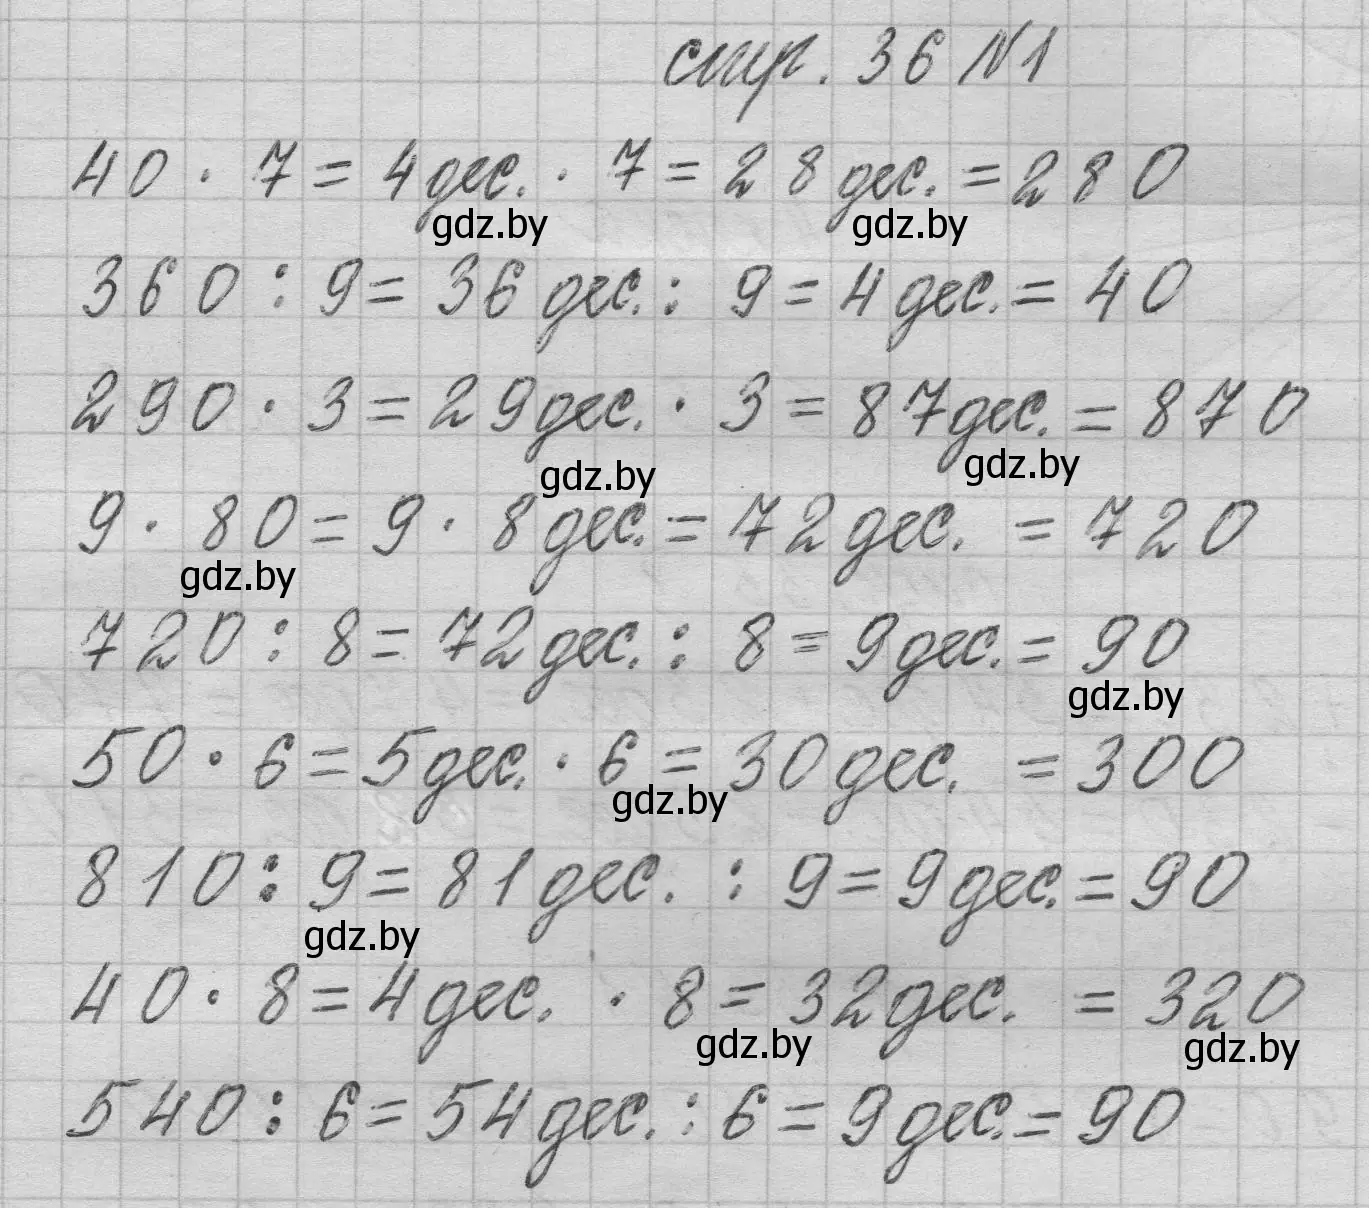 стр. 36 №1
40 · 7 = 4 дес. · 7 = 28 дес. = 280
gdz.by gdz.by
360 : 9 = 36 дес. : 9 = 4 дес. = 40
290 · 3 = 29 дес. · 3 = 87 дес. = 870
gdz.by gdz.by
9 · 80 = 9 · 8 дес. = 72 дес. = 720
gdz.by
720 : 8 = 72 дес. : 8 = 9 дес. = 90
gdz.by
50 · 6 = 5 дес. · 6 = 30 дес. = 300
gdz.by
810 : 9 = 81 дес. : 9 = 9 дес. = 90
gdz.by
40 · 8 = 4 дес. · 8 = 32 дес. = 320
gdz.by gdz.by
540 : 6 = 54 дес. : 6 = 9 дес. = 90